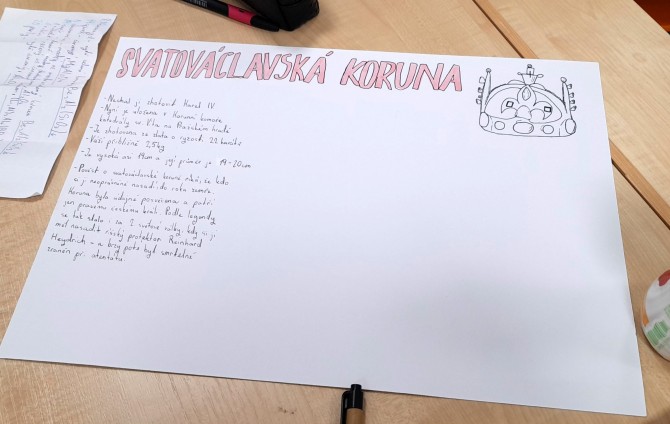 SVATOVÁCLAVSKÁ KORUNA
- Nechal ji zhotovit Karel IV
- Nyní je uložena v Korunní komoře
katedrály sv. Víta na Pražském hradě
- Je zhotovena ze zlata o ryzosti 22 karátů
- Váží přibližně 2,5kg
- Je vysoká asi 19cm a její průměr je 19-20cm
- Pověst o svatováclavské koruně říká, že kdo
si ji neoprávněně nasadí do roka zemře.
Koruna byla údajně posvěcena a patří
jen pravému českému králi. Podle legendy
se tak stalo i za 2 světové války, kdy si ji
měl nasadit říšský protektor Reinhard
Heydrich - a brzy poté byl smrtelně
zraněn při atentátu